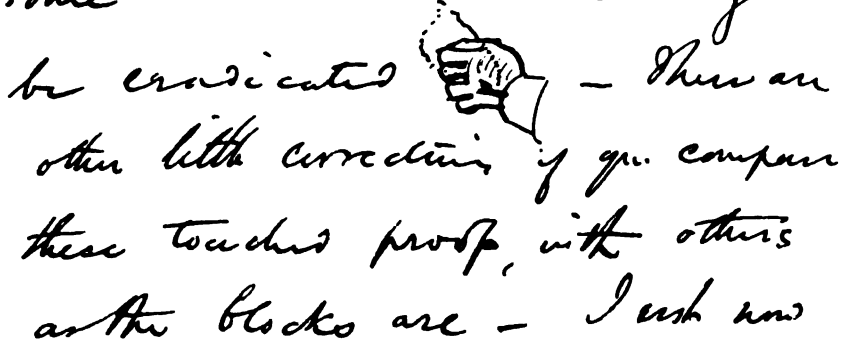 be eradicated — There are
other little corrections if you compare
these touched proofs, with others
as the blocks are — I wish now